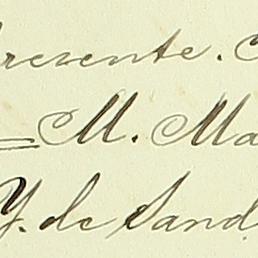 resente.
M. Ma
Y. de Sand